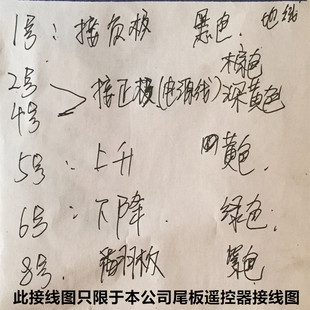 1号：接负极 黑色 地线
2号 棕色
4号 接正极(电源线) 深黄色
5号：上升 黄色
6号：下降 绿色
8号 翻板
此接线图只限于本公司尾板遥控器接线图